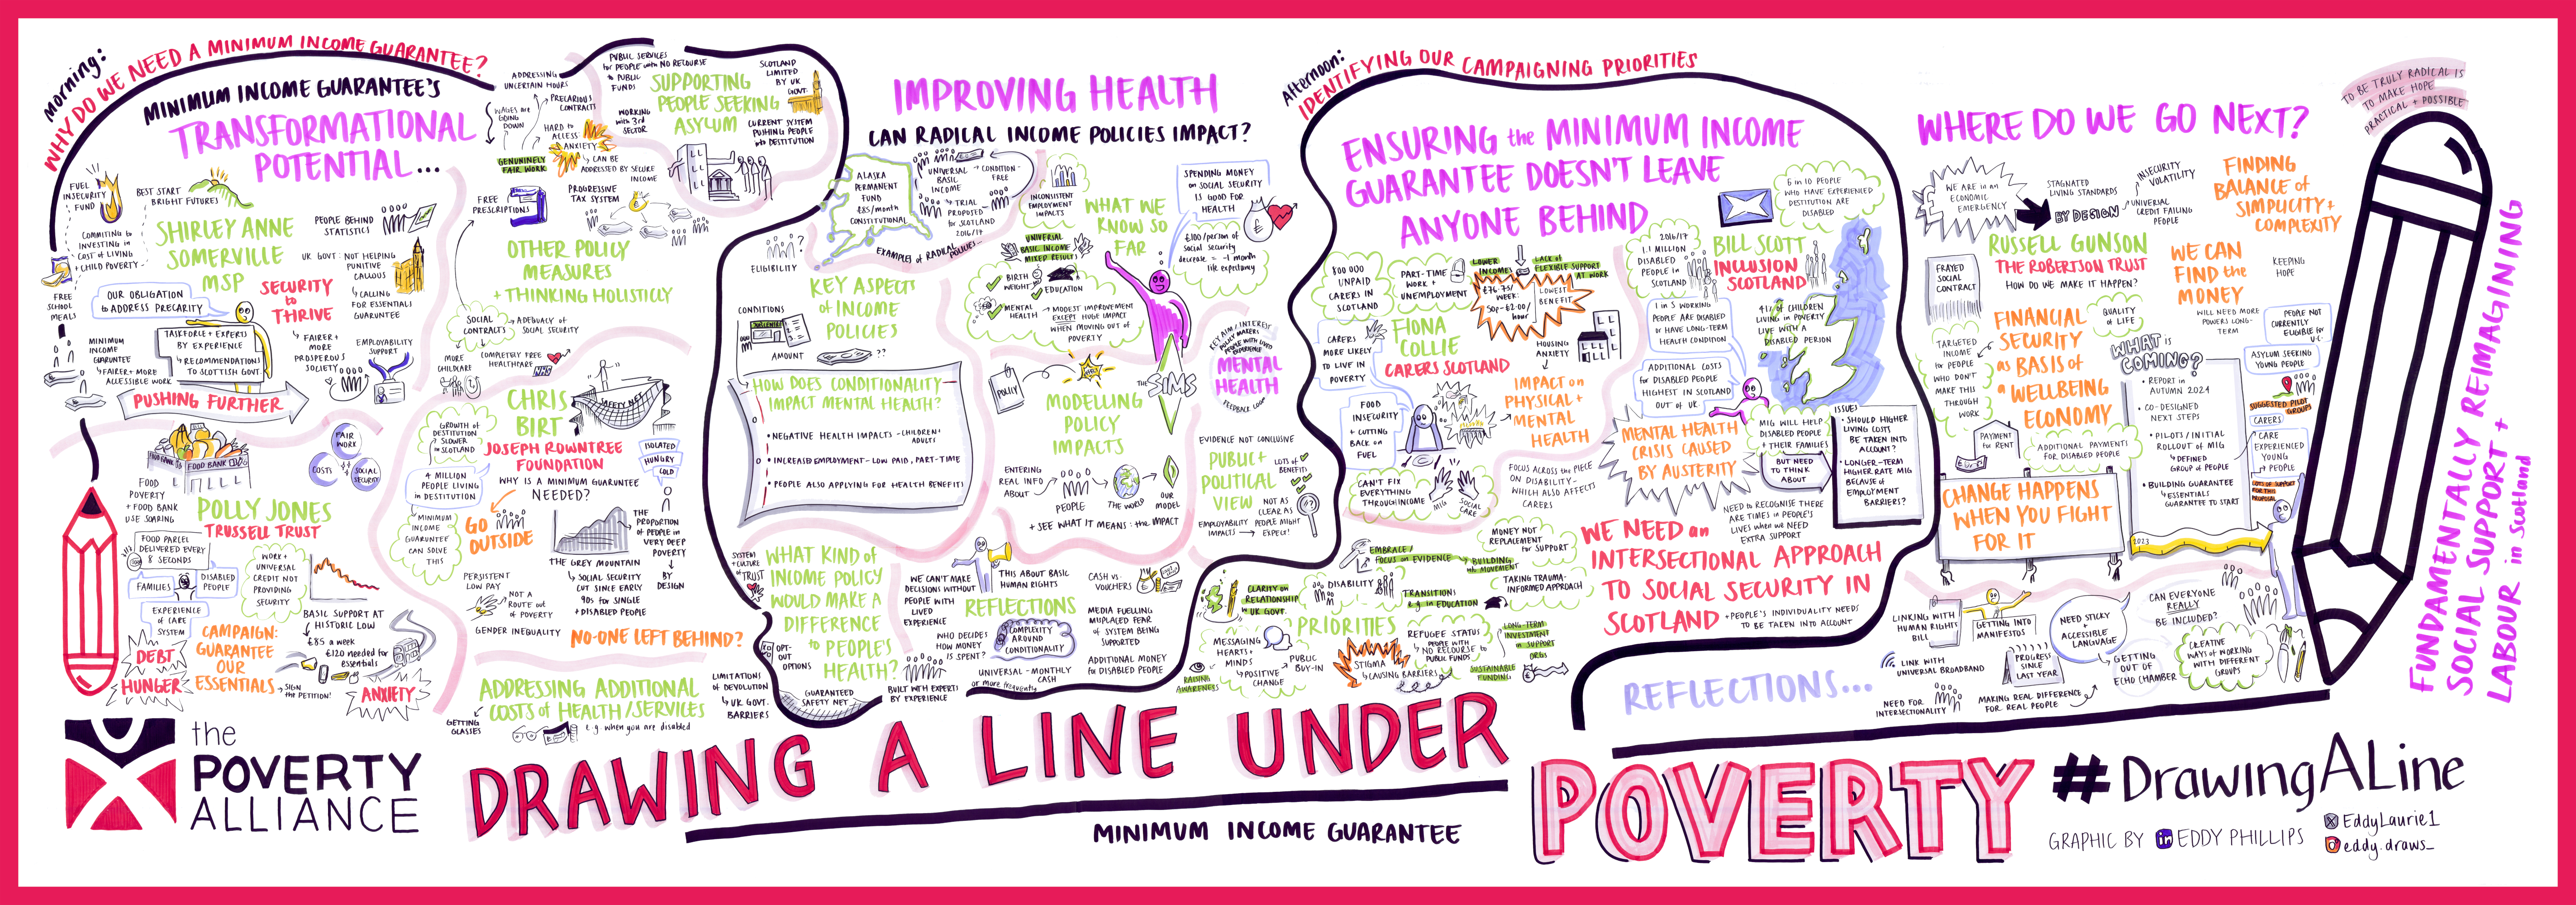 Morning:
WHY DO WE NEED A MINIMUM INCOME GUARANTEE?
MINIMUM INCOME GUARANTEE'S
TRANSFORMATIONAL
POTENTIAL...
FUEL
INSECURITY
FUND
BEST START
BRIGHT FUTURES
COMMITTING to
INVESTING in
COST of LIVING
+ CHILD POVERTY
FREE
SCHOOL
MEALS
SHIRLEY ANNE
SOMERVILLE
MSP
PEOPLE BEHIND
STATISTICS
UK GOVT: NOT HELPING
PUNITIVE
CALLOUS
CALLING
for ESSENTIALS
GUARANTEE
OUR OBLIGATION
to ADDRESS PRECARITY
SECURITY
to
THRIVE
TASKFORCE + EXPERTS
BY EXPERIENCE
RECOMMENDATIONS
TO SCOTTISH GOVT.
MINIMUM
INCOME
GUARANTEE
FAIRER + MORE
ACCESSIBLE WORK
FAIRER +
MORE
PROSPEROUS
SOCIETY
EMPLOYABILITY
SUPPORT
PUSHING FURTHER
ADDRESSING
UNCERTAIN HOURS
WAGES are
GOING
DOWN
PRECARIOUS
CONTRACTS
HARD to
ACCESS:
ANXIETY
GENUINELY
FAIR WORK
CAN BE
ADDRESSED BY SECURE
INCOME
FREE
PRESCRIPTIONS
PROGRESSIVE
TAX SYSTEM
OTHER POLICY
MEASURES
+ THINKING HOLISTICLY
SOCIAL
CONTRACTS
ADEQUACY of
SOCIAL SECURITY
MORE
CHILDCARE
COMPLETELY FREE
HEALTHCARE
NHS
PUBLIC SERVICES
for PEOPLE with NO RECOURSE
to PUBLIC
FUNDS
SUPPORTING
PEOPLE SEEKING
ASYLUM
SCOTLAND
LIMITED
BY UK
GOVT.
WORKING
with 3rd
SECTOR
CURRENT SYSTEM
PUSHING PEOPLE
into DESTITUTION
FOOD BANK
FOOD BANK
FOOD
POVERTY
+ FOOD BANK
USE SOARING
FAIR
WORK
COSTS
SOCIAL
SECURITY
POLLY JONES
TRUSSELL TRUST
FOOD PARCEL
DELIVERED EVERY
8 SECONDS
FAMILIES
DISABLED
PEOPLE
EXPERIENCE
of CARE
SYSTEM
WORK +
UNIVERSAL
CREDIT NOT
PROVIDING
SECURITY
BASIC SUPPORT AT
HISTORIC LOW
£85 a week
£120 needed for
essentials
CAMPAIGN:
GUARANTEE
OUR
ESSENTIALS
SIGN
the PETITION!
DEBT
HUNGER
ANXIETY
CHRIS
BIRT
JOSEPH ROWNTREE
FOUNDATION
SAFETY NET
GROWTH of
DESTITUTION
SLOWER
in SCOTLAND
4 MILLION
PEOPLE LIVING
in DESTITUTION
MINIMUM
INCOME
GUARANTEE
CAN SOLVE
THIS
WHY IS A MINIMUM GUARANTEE
NEEDED?
ISOLATED
HUNGRY
COLD
GO
OUTSIDE
THE
PROPORTION
of PEOPLE in
VERY DEEP
POVERTY
BY
DESIGN
THE GREY MOUNTAIN
SOCIAL SECURITY
CUT SINCE EARLY
90s FOR SINGLE
+ DISABLED PEOPLE
PERSISTENT
LOW PAY
NOT A
ROUTE out
of POVERTY
GENDER INEQUALITY
NO-ONE LEFT BEHIND?
ADDRESSING ADDITIONAL
COSTS of HEALTH/SERVICES
GETTING
GLASSES
e.g. when you are disabled
LIMITATIONS
of DEVOLUTION
UK GOVT.
BARRIERS
IMPROVING HEALTH
CAN RADICAL INCOME POLICIES IMPACT?
ALASKA
PERMANENT
FUND
£85/month
CONSTITUTIONAL
UNIVERSAL
BASIC
INCOME
CONDITION-
FREE
TRIAL
PROPOSED
for SCOTLAND
2016/17
EXAMPLES of RADICAL POLICIES
ELIGIBILITY
?
KEY ASPECT
of INCOME
POLICIES
CONDITIONS
AMOUNT
??
HOW DOES CONDITIONALITY
IMPACT MENTAL HEALTH?
• NEGATIVE HEALTH IMPACTS - CHILDREN +
ADULTS
• INCREASED EMPLOYMENT - LOW PAID, PART-TIME
• PEOPLE ALSO APPLYING FOR HEALTH BENEFITS
INCONSISTENT
EMPLOYMENT
IMPACTS
WHAT WE
KNOW SO
FAR
SPENDING MONEY
on SOCIAL SECURITY
IS GOOD FOR
HEALTH
£100/person of
social security
decrease = -1 month
life expectancy
UNIVERSAL
BASIC INCOME
(MIXED RESULTS)
BIRTH
WEIGHT
EDUCATION
MENTAL
HEALTH
MODEST IMPROVEMENT
EXCEPT HUGE IMPACT
WHEN MOVING OUT of
POVERTY
POLICY
WHAT IF
MODELLING
POLICY
IMPACTS
THE SIMS
MENTAL
HEALTH
FEEDBACK LOOP
ENTERING
REAL INFO
ABOUT
PEOPLE
THE WORLD
OUR
MODEL
+ SEE WHAT IT MEANS: the IMPACT
EVIDENCE NOT CONCLUSIVE
PUBLIC +
POLITICAL
VIEW
LOTS of
BENEFITS
NOT AS
CLEAR AS
PEOPLE MIGHT
EXPECT!
EMPLOYABILITY
IMPACTS
SYSTEM
+ CULTURE
of TRUST
WHAT KIND of
INCOME POLICY
WOULD MAKE A
DIFFERENCE
to PEOPLE'S
HEALTH?
OPT-
OUT
OPTIONS
GUARANTEED
SAFETY NET
BUILT WITH EXPERTS
BY EXPERIENCE
WE CAN'T MAKE
DECISIONS WITHOUT
PEOPLE WITH
LIVED
EXPERIENCE
THIS ABOUT BASIC
HUMAN RIGHTS
REFLECTIONS
WHO DECIDES
HOW MONEY
IS SPENT?
COMPLEXITY
AROUND
CONDITIONALITY
UNIVERSAL - MONTHLY
CASH
or more frequently
CASH vs.
VOUCHERS
MEDIA FUELLING
MISPLACED FEAR
of SYSTEM BEING
SUPPORTED
ADDITIONAL MONEY
for DISABLED PEOPLE
Afternoon:
IDENTIFYING OUR CAMPAIGNING PRIORITIES
ENSURING the MINIMUM INCOME
GUARANTEE DOESN'T LEAVE
ANYONE BEHIND
6 in 10 PEOPLE
WHO HAVE EXPERIENCED
DESTITUTION ARE
DISABLED
800 000
UNPAID
CARERS IN
SCOTLAND
PART-TIME
WORK +
UNEMPLOYMENT
LOWER
INCOMES
LACK of
FLEXIBLE SUPPORT
AT WORK
£76.75/
WEEK:
50p-£2.00/
hour
LOWEST
BENEFIT
FIONA
COLLIE
CARERS SCOTLAND
CARERS
MORE LIKELY
TO LIVE IN
POVERTY
HOUSING
ANXIETY
IMPACT on
PHYSICAL +
MENTAL
HEALTH
FOOD
INSECURITY
+ CUTTING
BACK on
FUEL
CAN'T FIX
EVERYTHING
THROUGH INCOME
MIG
SOCIAL
CARE
FOCUS ACROSS the PIECE
ON DISABILITY-
WHICH ALSO AFFECTS
CARERS
2016/17
1.1 MILLION
DISABLED
PEOPLE in
SCOTLAND
BILL SCOTT
INCLUSION
SCOTLAND
1 in 5 WORKING
PEOPLE ARE DISABLED
or HAVE LONG-TERM
HEALTH CONDITION
41% of CHILDREN
LIVING in POVERTY
LIVE WITH A
DISABLED PERSON
ADDITIONAL COSTS
for DISABLED PEOPLE
HIGHEST in SCOTLAND
OUT of UK
MENTAL HEALTH
CRISIS CAUSED
BY AUSTERITY
MIG WILL HELP
DISABLED PEOPLE
+ THEIR FAMILIES
BUT NEED
TO THINK
ABOUT
ISSUES
• SHOULD HIGHER
LIVING COSTS
BE TAKEN INTO
ACCOUNT?
• LONGER-TERM
HIGHER RATE MIG
BECAUSE of
EMPLOYMENT
BARRIERS?
NEED to RECOGNISE THERE
ARE TIMES in PEOPLE'S
LIVES when WE NEED
EXTRA SUPPORT
WE NEED an
INTERSECTIONAL APPROACH
TO SOCIAL SECURITY IN
SCOTLAND
+ PEOPLE'S INDIVIDUALITY NEEDS
TO BE TAKEN INTO ACCOUNT
EMBRACE/
FOCUS on EVIDENCE
BUILDING
the MOVEMENT
MONEY NOT
REPLACEMENT
for SUPPORT
TAKING TRAUMA-
INFORMED APPROACH
CLARITY on
RELATIONSHIP
to UK GOVT.
DISABILITY
TRANSITIONS
e.g. in EDUCATION
PRIORITIES
MESSAGING
HEARTS +
MINDS
POSITIVE
CHANGE
PUBLIC
BUY-IN
RAISING
AWARENESS
STIGMA
CAUSING BARRIERS
REFUGEE STATUS
PEOPLE WITH
NO RECOURSE to
PUBLIC FUNDS
LONG-TERM
INVESTMENT
in SUPPORT
ORGS
SUSTAINABLE
FUNDING
WHERE DO WE GO NEXT?
WE ARE in an
ECONOMIC
EMERGENCY
STAGNATED
LIVING STANDARDS
BY DESIGN
INSECURITY
VOLATILITY
UNIVERSAL
CREDIT FAILING
PEOPLE
FINDING
BALANCE of
SIMPLICITY +
COMPLEXITY
RUSSELL GUNSON
THE ROBERTSON TRUST
HOW DO WE MAKE IT HAPPEN?
FRAYED
SOCIAL
CONTRACT
WE CAN
FIND the
MONEY
KEEPING
HOPE
WILL NEED MORE
POWERS LONG-
TERM
TARGETED
INCOME
for PEOPLE
WHO DON'T
MAKE THIS
THROUGH
WORK
FINANCIAL
SECURITY
as BASIS of
a WELLBEING
ECONOMY
QUALITY
of LIFE
PAYMENT
for RENT
ADDITIONAL PAYMENTS
FOR DISABLED PEOPLE
CHANGE HAPPENS
WHEN YOU FIGHT
FOR IT
WHAT is
COMING?
• REPORT in
AUTUMN 2024
• CO-DESIGNED
NEXT STEPS
• PILOTS/INITIAL
ROLLOUT of MIG
DEFINED
GROUP of PEOPLE
• BUILDING GUARANTEE
ESSENTIALS
GUARANTEE TO START
2023
PEOPLE NOT
CURRENTLY
ELIGIBLE for
U.C.
ASYLUM SEEKING
YOUNG PEOPLE
SUGGESTED PILOT
GROUPS
CARERS
CARE
EXPERIENCED
YOUNG
PEOPLE
LOTS of SUPPORT
FOR THIS
PROPOSAL
LINKING WITH
HUMAN RIGHTS
BILL
GETTING INTO
MANIFESTOS
NEED STICKY
+
ACCESSIBLE
LANGUAGE
CAN EVERYONE
REALLY
BE INCLUDED?
LINK WITH
UNIVERSAL BROADBAND
PROGRESS
SINCE
LAST YEAR
GETTING
OUT OF
ECHO CHAMBER
CREATIVE
WAYS of WORKING
WITH DIFFERENT
GROUPS
NEED FOR
INTERSECTIONALITY
MAKING REAL DIFFERENCE
FOR REAL PEOPLE
REFLECTIONS...
TO BE TRULY RADICAL IS
TO MAKE HOPE
PRACTICAL + POSSIBLE
FUNDAMENTALLY REIMAGINING
SOCIAL SUPPORT +
LABOUR in Scotland
the
POVERTY
ALLIANCE
DRAWING A LINE UNDER
POVERTY
MINIMUM INCOME GUARANTEE
#DrawingALine
GRAPHIC BY in EDDY PHILLIPS
EddyLaurie1
eddy.draws_